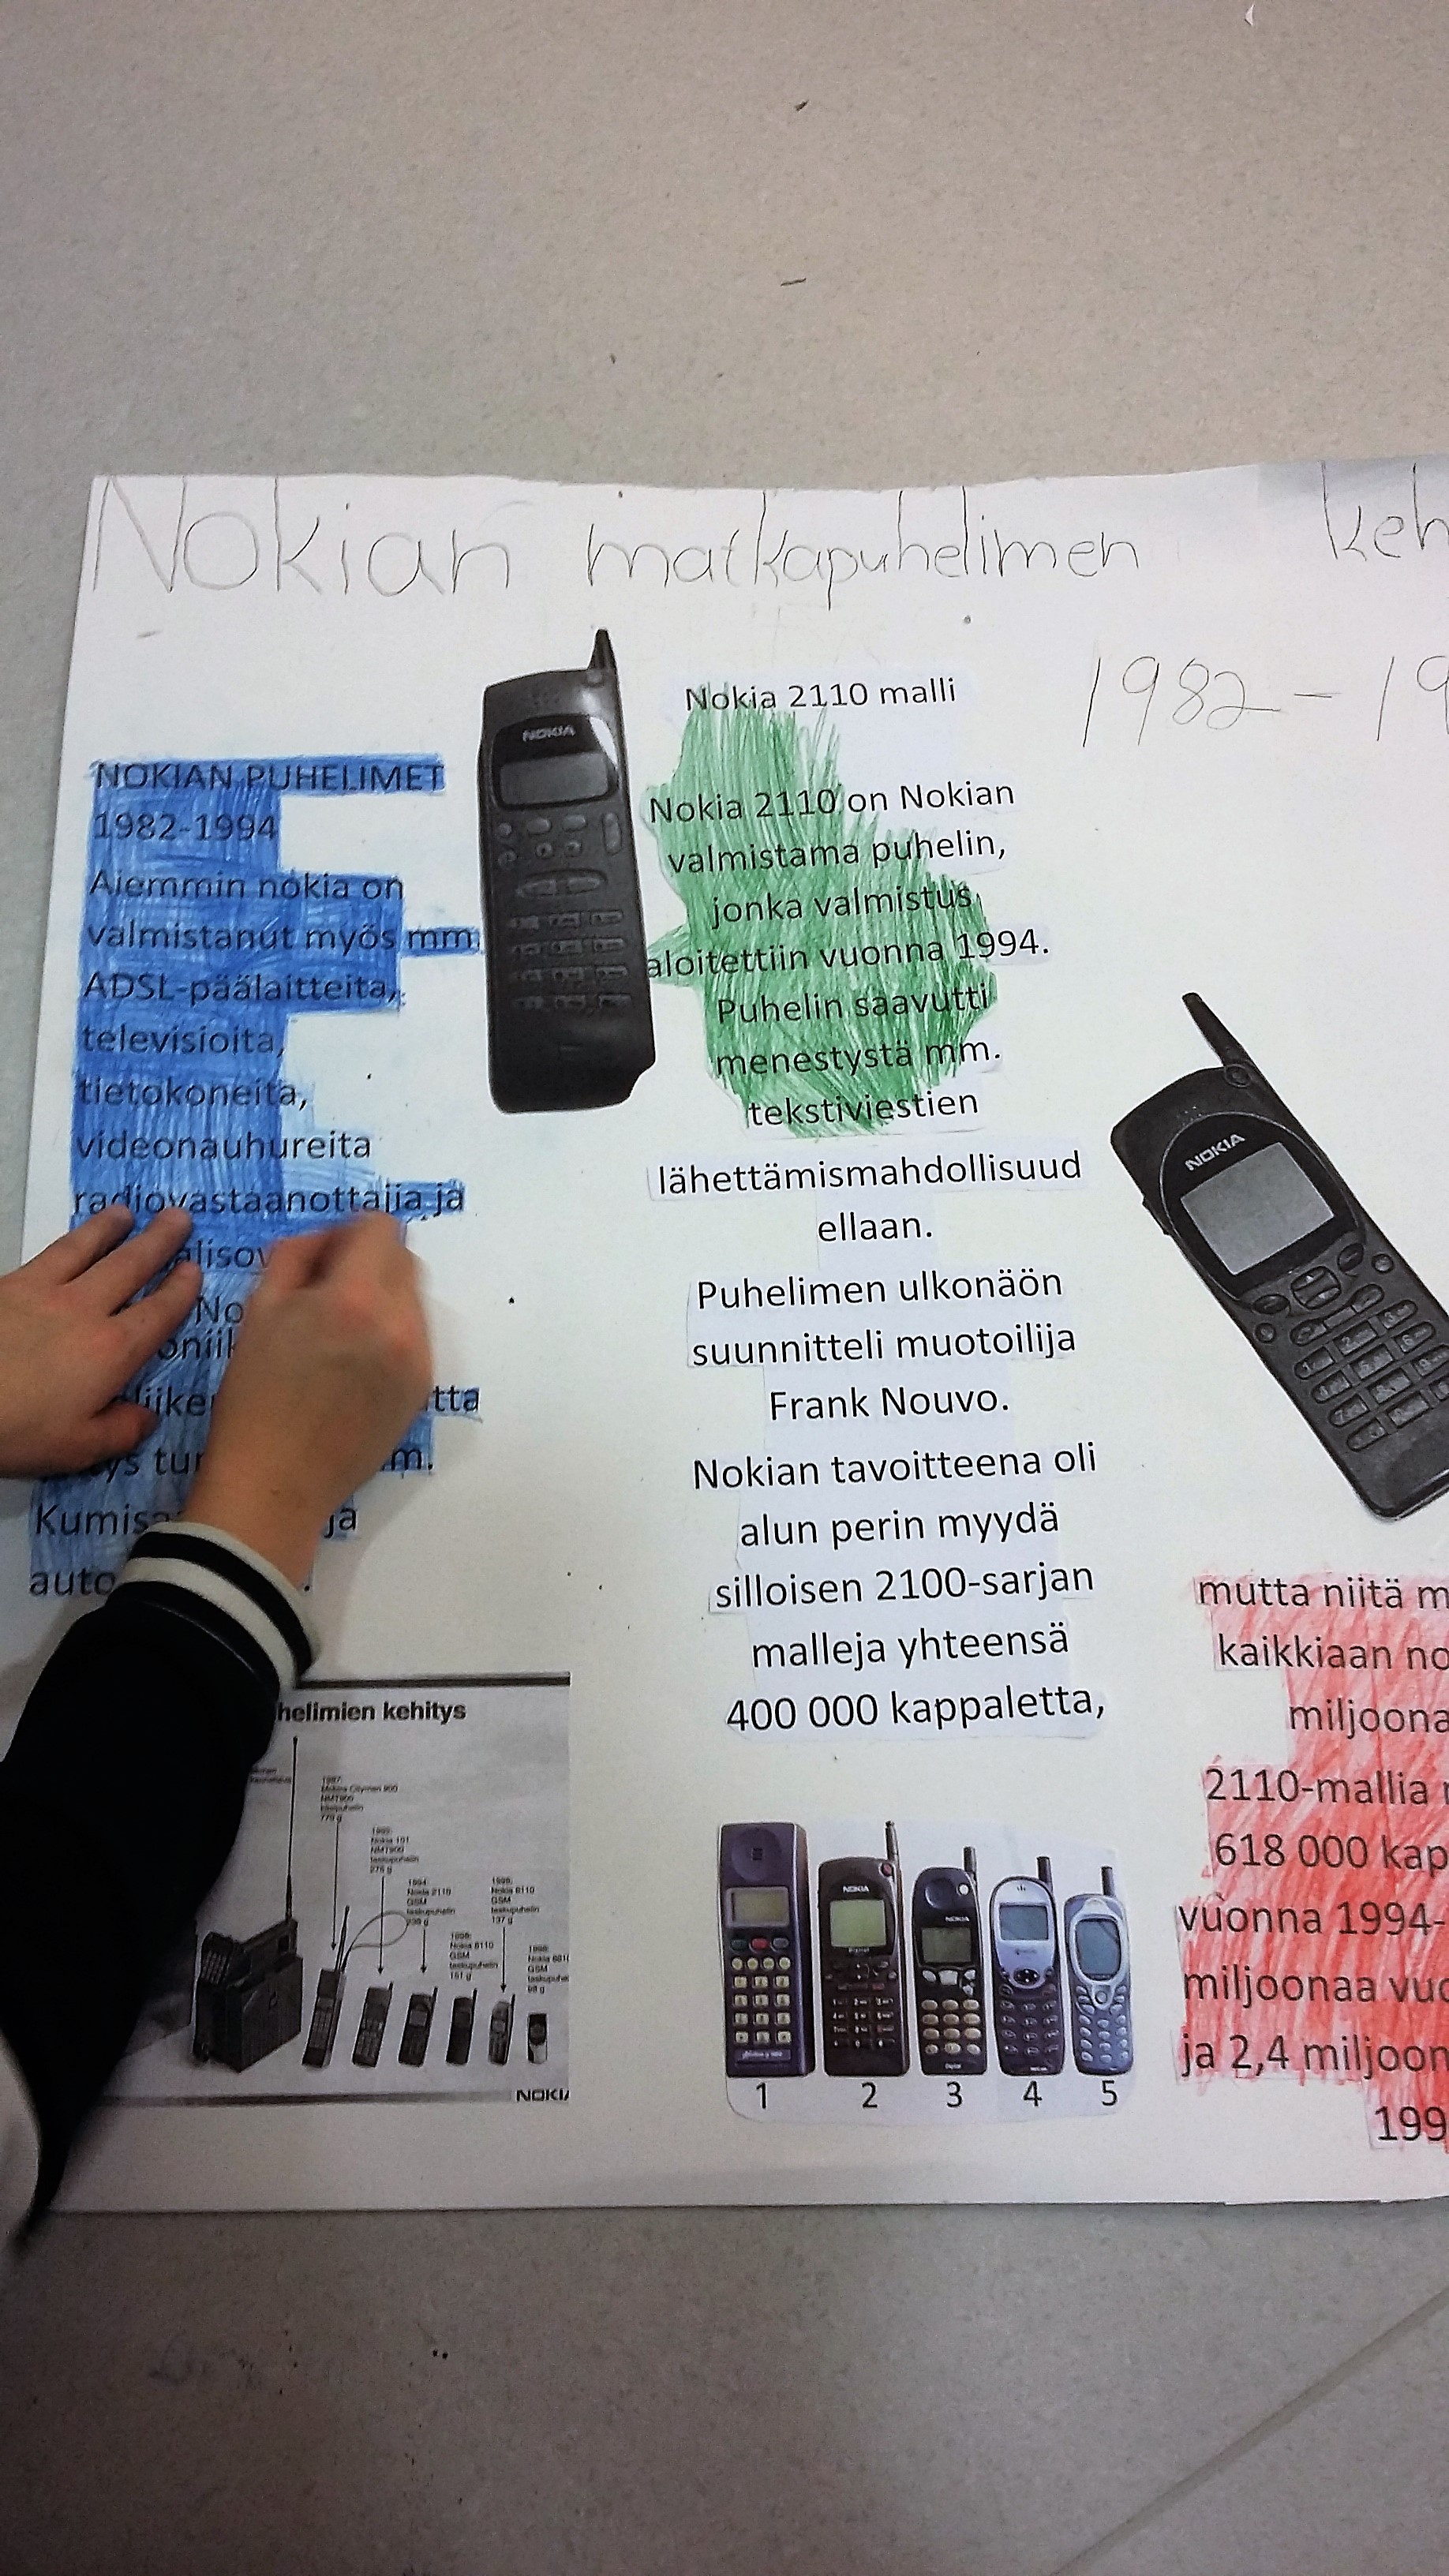 Nokian matkapuhelimen keh
1982-19
NOKIAN PUHELIMET
1982-1994
Aiemmin nokia on
valmistanut myös mm.
ADSL-päälaitteita,
televisioita,
tietokoneita,
videonauhureita
radiovastaanottajia ja
alisov
No
oniik
liike tta
ys tur m.
Kumisa ja
auto .
NOKIA
Nokia 2110 malli
Nokia 2110 on Nokian
valmistama puhelin,
jonka valmistus
aloitettiin vuonna 1994.
Puhelin saavutti
menestystä mm.
tekstiviestien
lähettämismahdollisuud
ellaan.
Puhelimen ulkonäön
suunnitteli muotoilija
Frank Nouvo.
Nokian tavoitteena oli
alun perin myydä
silloisen 2100-sarjan
malleja yhteensä
400 000 kappaletta,
NOKIA
mutta niitä m
kaikkiaan no
miljoona
2110-mallia
618 000 kap
vuonna 1994-
miljoonaa vuo
ja 2,4 miljoon
199
helimien kehitys
1987:
Mobira Cityman 900
NMT900
käsipuhelin
Nokia 101
NMT900
taskupuhelin
275 g
1994:
Nokia 2110
GSM
taskupuhelin
Nokia 8110
GSM
taskupuhelin
151 g
Nokia 6110
GSM
taskupuhelin
137 g
1998:
GSM
NOKIA
NOKIA
NOKIA
1 2 3 4 5